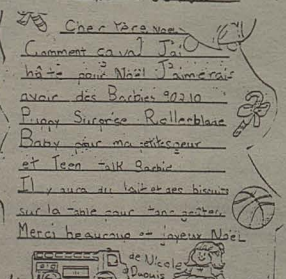 Cher Père Noël
Comment ça va? J'ai
hâte pour Noël J'aimerais
avoir des Barbies 90210
Puppy Surprise Rollerblade
Baby pour ma petite soeur
et Teen Talk Barbie
Il y aura du lait et des biscuits
sur la table pour ton goûter
Merci beaucoup Joyeux Noël
de Nicole